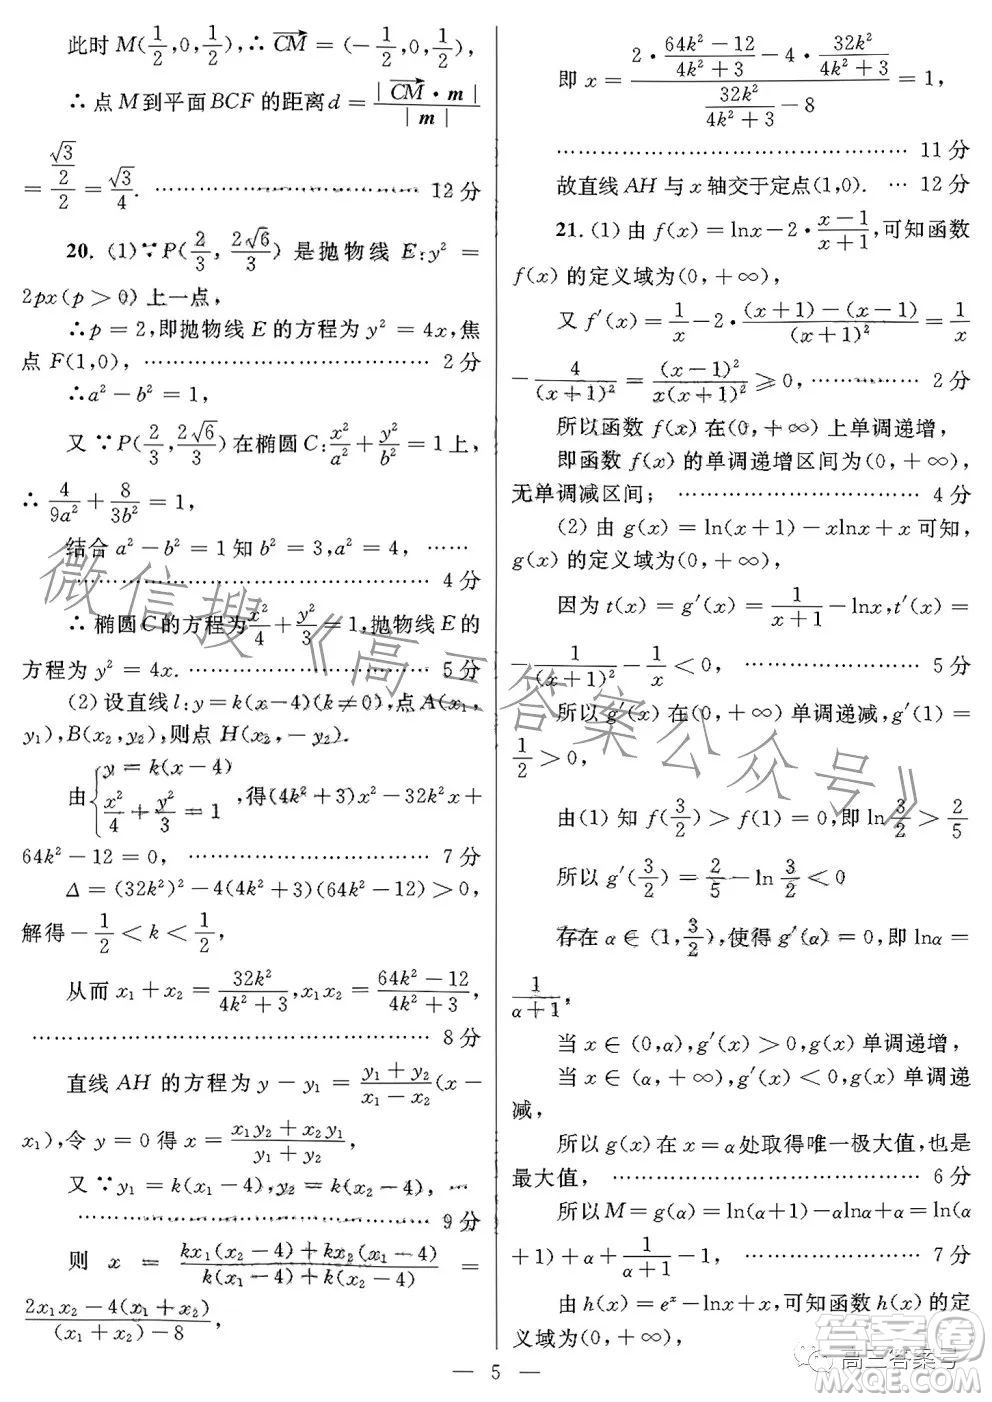 此时 M(1/2,0,1/2),∴ CM⃗ = (-1/2,0,1/2),
∴点 M 到平面 BCF 的距离 d = |CM⃗ · m| / |m|
= (√3/2)/2 = √3/4. …………………… 12 分
20. (1)∵P(2/3, 2√6/3) 是抛物线 E:y² =
2px(p > 0) 上一点,
∴p = 2,即抛物线 E 的方程为 y² = 4x,焦
点 F(1,0), …………………… 2 分
∴a² - b² = 1,
又∵P(2/3, 2√6/3) 在椭圆 C: x²/a² + y²/b² = 1 上,
∴ 4/(9a²) + 8/(3b²) = 1,
结合 a² - b² = 1 知 b² = 3,a² = 4, ……
…………………… 4 分
∴椭圆 C 的方程为 x²/4 + y²/3 = 1,抛物线 E 的
方程为 y² = 4x. …………………… 5 分
(2) 设直线 l:y = k(x-4)(k≠0),点 A(x₁,
y₁),B(x₂,y₂),则点 H(x₂,-y₂).
由{ y = k(x-4)
x²/4 + y²/3 = 1 ,得(4k²+3)x² - 32k²x +
64k² - 12 = 0, …………………… 7 分
Δ = (32k²)² - 4(4k²+3)(64k²-12) > 0,
解得 - 1/2 < k < 1/2,
从而 x₁ + x₂ = 32k²/(4k²+3), x₁x₂ = (64k²-12)/(4k²+3),
…………………… 8 分
直线 AH 的方程为 y - y₁ = (y₁+y₂)/(x₁-x₂) (x -
x₁),令 y = 0 得 x = (x₁y₂+x₂y₁)/(y₁+y₂),
又∵y₁ = k(x₁-4),y₂ = k(x₂-4), …
…………………… 9 分
则 x = [kx₁(x₂-4)+kx₂(x₁-4)]/[k(x₁-4)+k(x₂-4)] =
[2x₁x₂-4(x₁+x₂)]/[(x₁+x₂)-8],
即 x = [2·(64k²-12)/(4k²+3) - 4·32k²/(4k²+3)]/[32k²/(4k²+3) - 8] = 1,
…………………… 11 分
故直线 AH 与 x 轴交于定点(1,0). … 12 分
21. (1) 由 f(x) = lnx - 2·(x-1)/(x+1),可知函数
f(x) 的定义域为(0,+∞),
又 f′(x) = 1/x - 2·[(x+1)-(x-1)]/(x+1)² = 1/x
- 4/(x+1)² = (x-1)²/[x(x+1)²] ≥ 0, …………… 2 分
所以函数 f(x) 在(0,+∞) 上单调递增,
即函数 f(x) 的单调递增区间为(0,+∞),
无单调减区间; …………………… 4 分
(2) 由 g(x) = ln(x+1) - xlnx + x 可知,
g(x) 的定义域为(0,+∞),
因为 t(x) = g′(x) = 1/(x+1) - lnx,t′(x) =
- 1/(x+1)² - 1/x < 0, …………………… 5 分
所以 g′(x) 在(0,+∞) 单调递减,g′(1) =
1/2 > 0,
由(1) 知 f(3/2) > f(1) = 0,即 ln 3/2 > 2/5
所以 g′(3/2) = 2/5 - ln 3/2 < 0
存在 α ∈ (1, 3/2),使得 g′(α) = 0,即 lnα =
1/(α+1),
当 x ∈ (0,α),g′(x) > 0,g(x) 单调递增,
当 x ∈ (α,+∞),g′(x) < 0,g(x) 单调递
减,
所以 g(x) 在 x = α 处取得唯一极大值,也是
最大值, …………………… 6 分
所以 M = g(α) = ln(α+1) - αlnα + α = ln(α
+1) + α + 1/(α+1) - 1, …………………… 7 分
由 h(x) = eˣ - lnx + x,可知函数 h(x) 的定
义域为(0,+∞),
— 5 —
微信搜《高三答案公众号》
高三答案号
答案圈
MXQE.COM